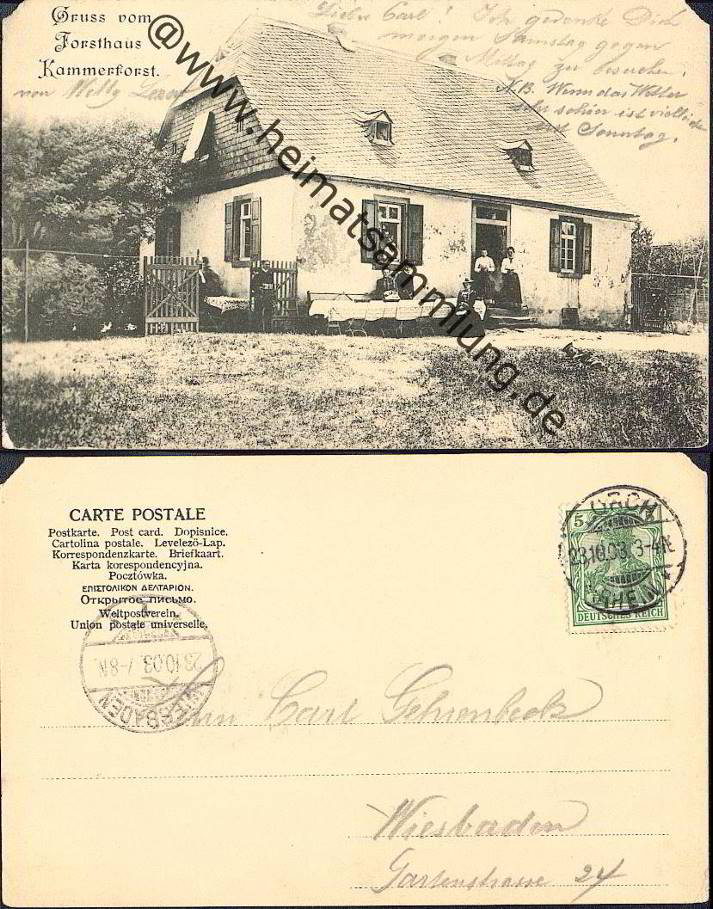 Gruss vom
Forsthaus
Kammerforst.
von Willy
Lieber Carl! Ich gedenke Dich
morgen Samstag gegen
Mittag zu besuchen.
N.B. Wenn das Wetter
sehr schön ist
Sonntag.
@www.heimatsammlung.de
CARTE POSTALE
Postkarte. Post card. Dopisnice.
Cartolina postale. Levelező-Lap.
Korrespondenzkarte. Briefkaart.
Karta korespondencyjna.
Pocztówka.
ΕΠΙΣΤΟΛΙΚΟΝ ΔΕΛΤΑΡΙΟΝ.
Открытое письмо.
Weltpostverein.
Union postale universelle.
5
DEUTSCHES REICH
LORCH
23.10.03. 3-4N.
RHEIN
23.10.03. 7-8N.
WIESBADEN
Herrn Carl Gehrenbeck
Wiesbaden
Gartenstrasse 24